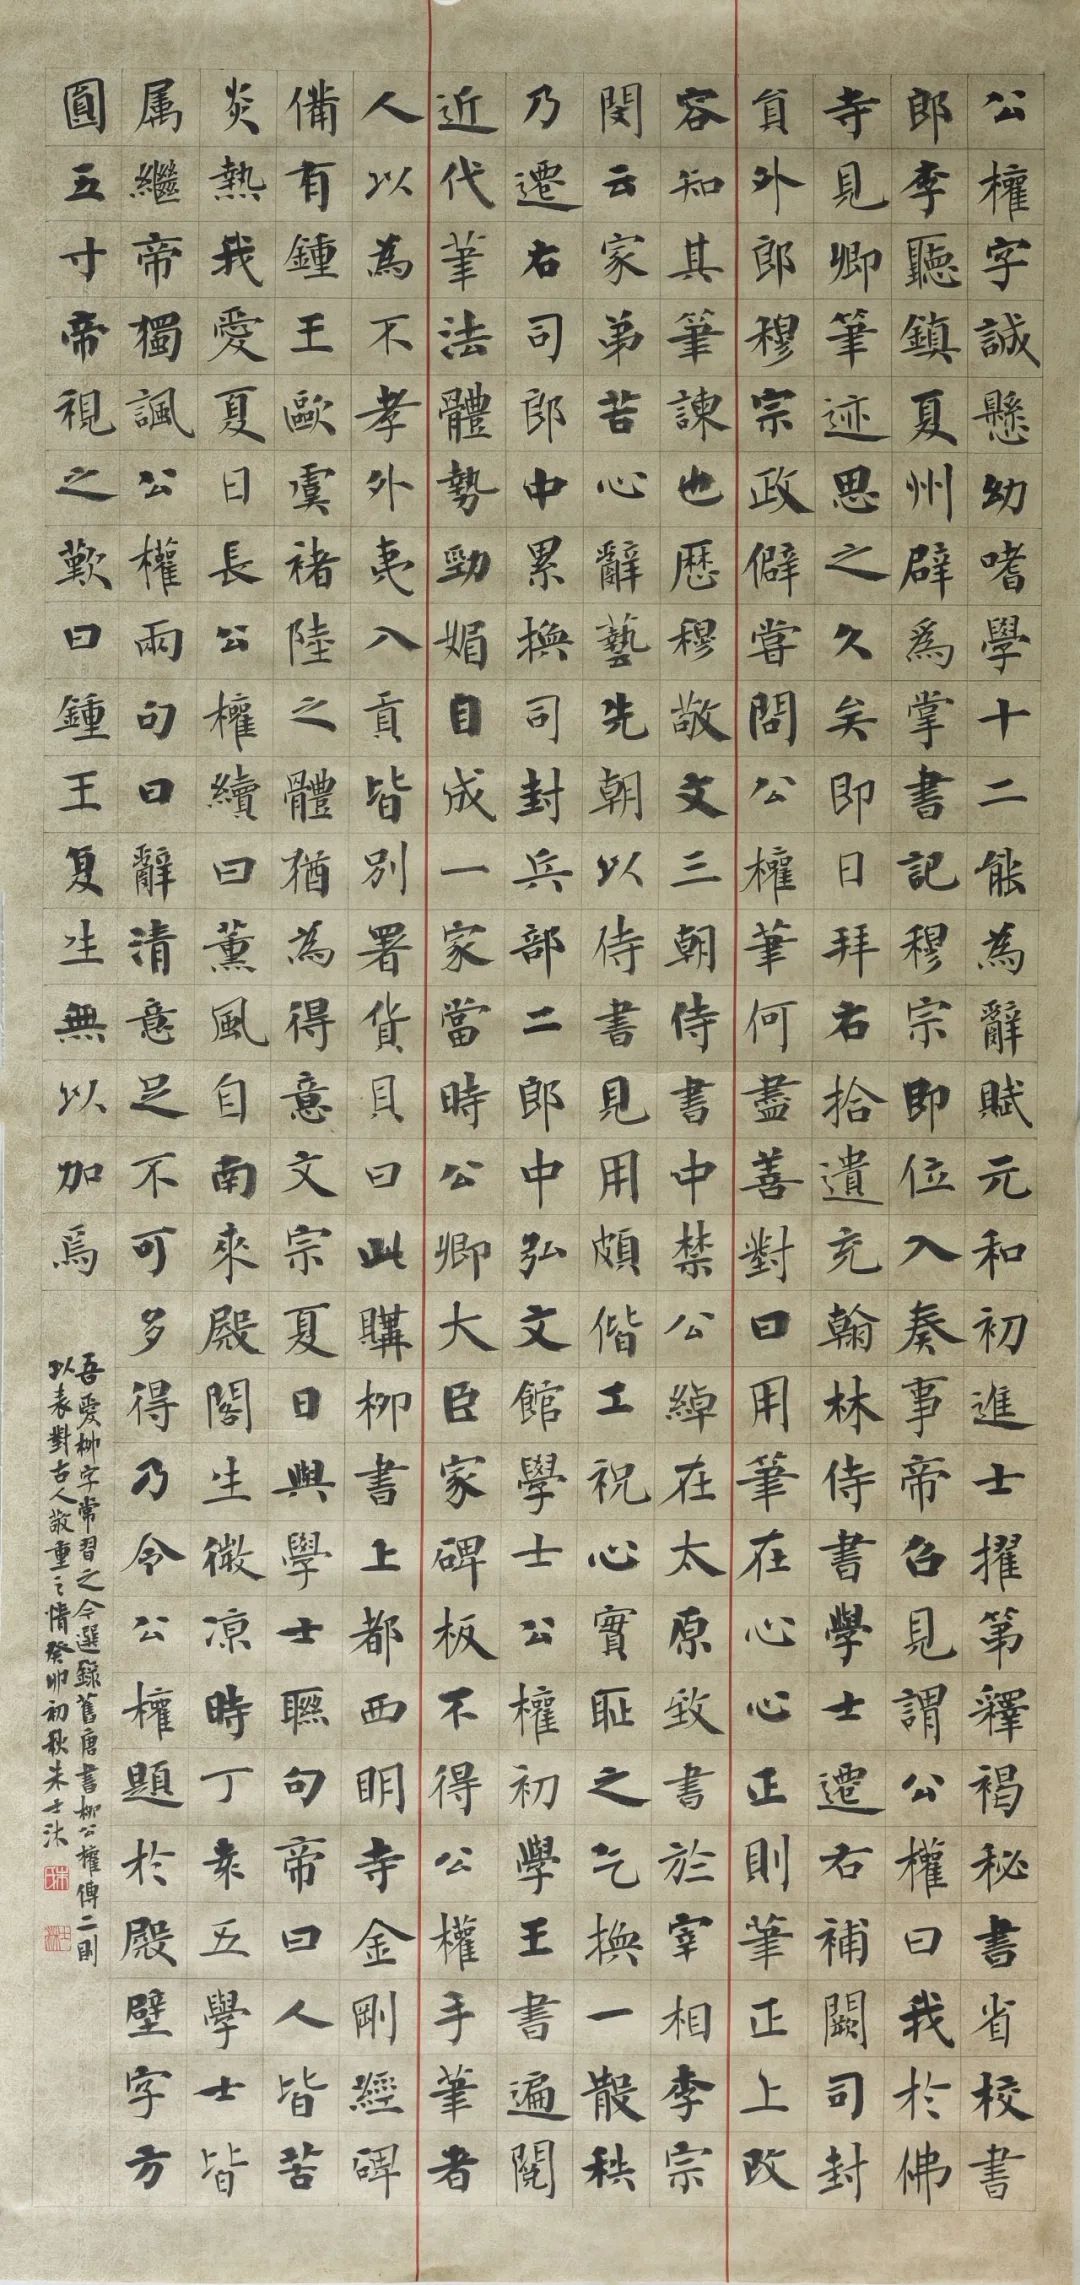 公權字誠懸幼嗜學十二能為辭賦元和初進士擢第釋褐秘書省校書
郎李聽鎮夏州辟爲掌書記穆宗即位入奏事帝召見謂公權曰我於佛
寺見卿筆迹思之久矣即日拜右拾遺充翰林侍書學士遷右補闕司封
員外郎穆宗政僻嘗問公權筆何盡善對曰用筆在心心正則筆正上改
容知其筆諫也歷穆敬文三朝侍書中禁公綽在太原致書於宰相李宗
閔云家弟苦心辭藝先朝以侍書見用頗偕工祝心實恥之乞換一散秩
乃遷右司郎中累換司封兵部二郎中弘文館學士公權初學王書遍閱
近代筆法體勢勁媚自成一家當時公卿大臣家碑板不得公權手筆者
人以為不孝外夷入貢皆別署貨貝曰此購柳書上都西明寺金剛經碑
備有鍾王歐虞褚陸之體猶為得意文宗夏日與學士聯句帝曰人皆苦
炎熱我愛夏日長公權續曰薰風自南來殿閣生微凉時丁袁五學士皆
属繼帝獨諷公權兩句曰辭清意足不可多得乃令公權題於殿壁字方
圓五寸帝視之歎曰鍾王夏生無以加焉
吾愛柳字常習之今選錄舊唐書柳公權傳二則
以表對古人敬重之情癸卯初秋朱士